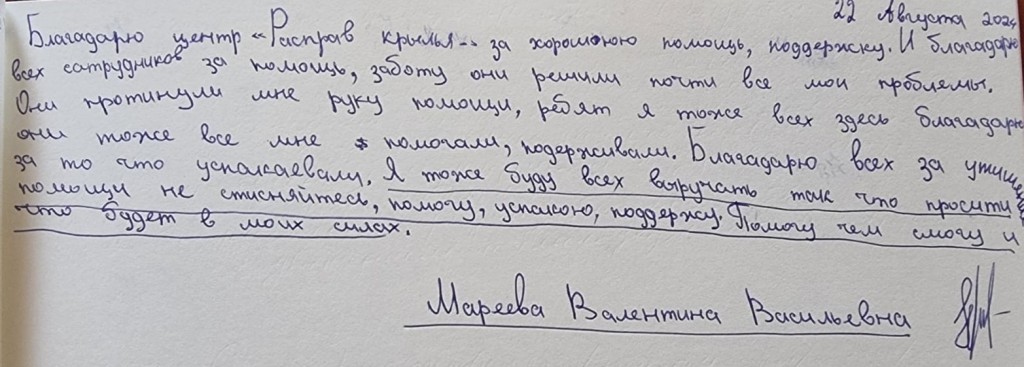 22 Августа 2024
Благадарю центр «Расправ крылья» за хорошоюю помощь, поддержку. И благадарю
всех сатрудников за помощь, заботу они решили почти все мои проблемы.
Они протинули мне руку помощи, ребят я тоже всех здесь благадарю
они тоже все мне помогали, подерживали. Благадарю всех за
за то что успакаевали. Я тоже буду всех выручать так что просити
помощи не стисняйтесь, помогу, успакою, поддержу. Помогу чем смогу и
что будет в моих силах.
Мареева Валентина Васильевна